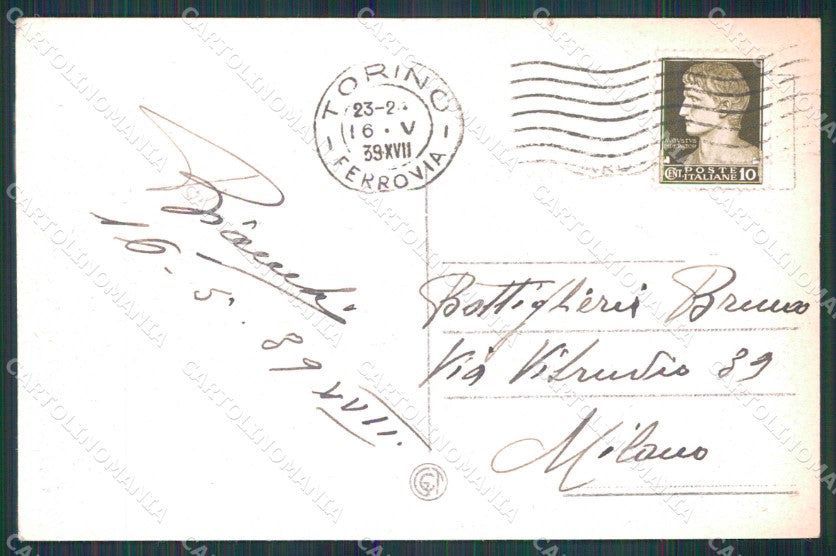 TORINO
23-2
16 · V
39·XVII
FERROVIA
AUGUSTVS
CENT. POSTE ITALIANE 10
Bianchi
16. 5. 39 XVII
Bottiglieris Bruno
Via Vitruvio 39
Milano
CARTOLINOMANIA